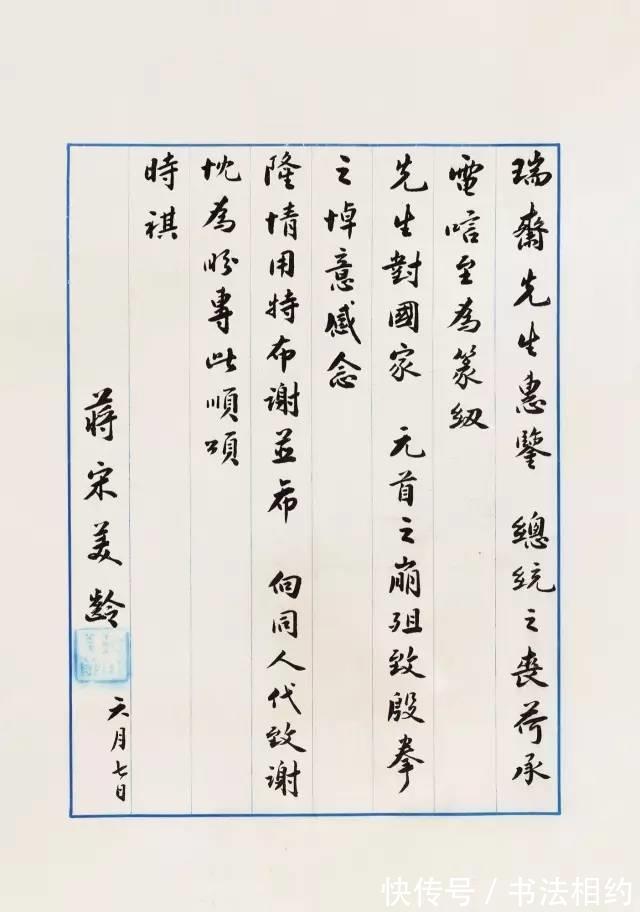 瑞齋先生惠鑒　總統之喪荷承
電唁至為篆紉
先生對國家　元首之崩殂致殷拳
之悼意感念
隆情用特布謝並希　向同人代致謝
忱為盼專此順頌
時祺
蔣宋美齡
六月七日
快传号 / 书法相约